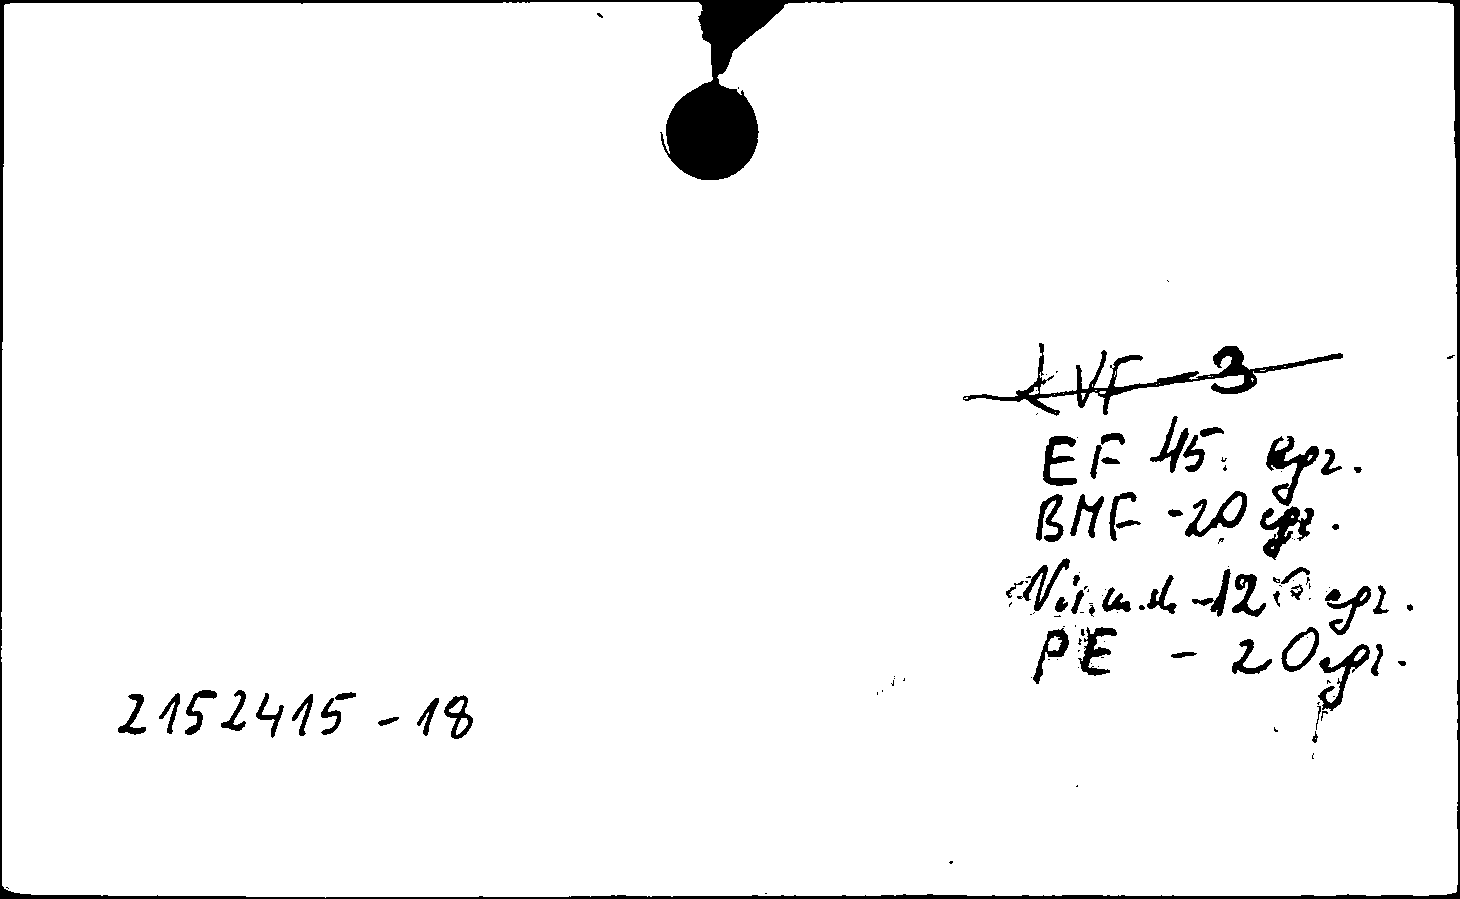 KVF - 3
EF 45 egz.
BMF - 20 egz.
Vis.m.sk - 12 egz.
PE - 20 egz.
2152415 - 18